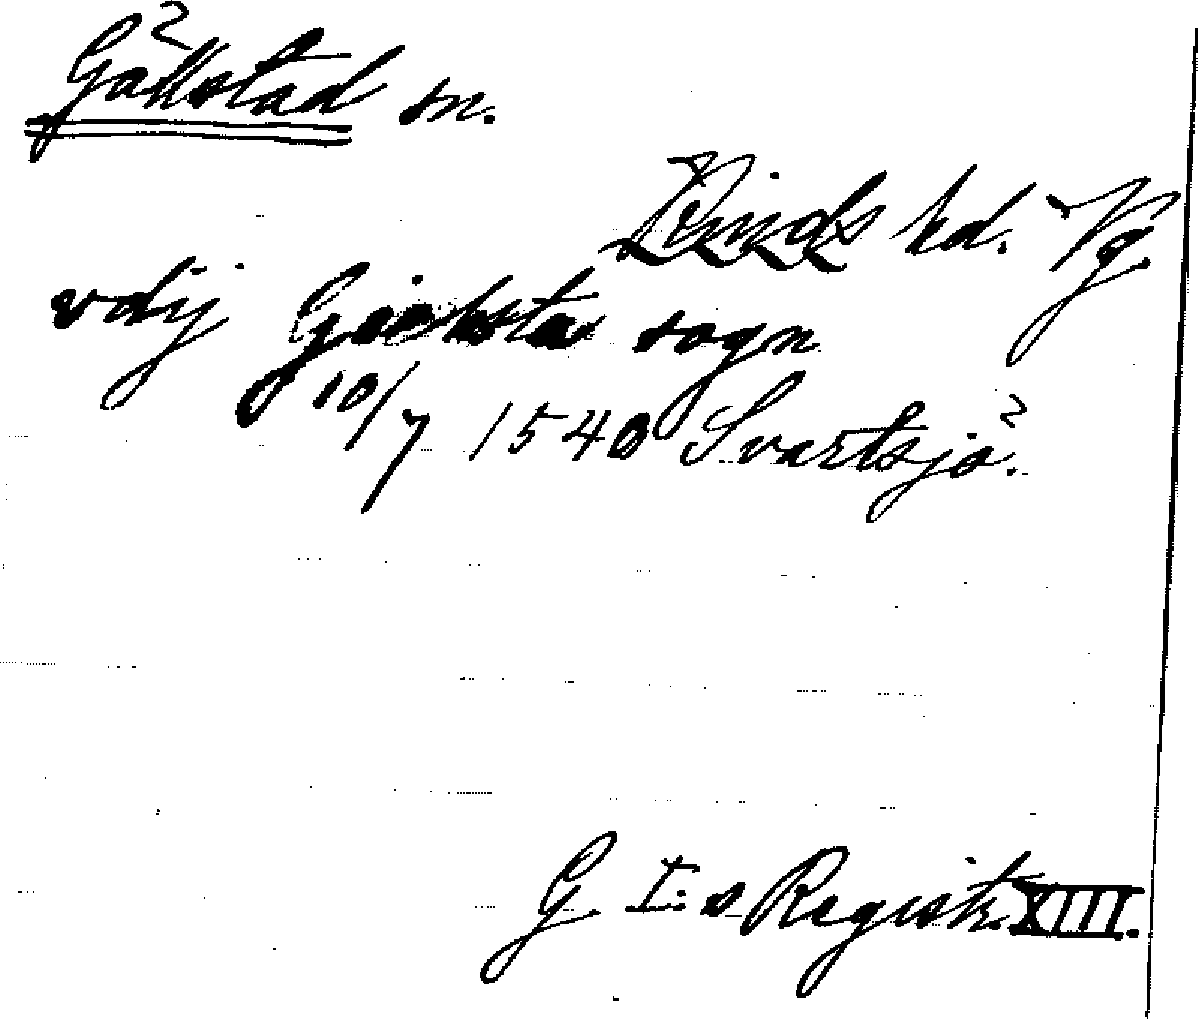 Gällstad sn.
Kinds hd. Vg.
vdij Giælsta sogn
10/7 1540 Svartsjö.
G. I:s Registr. XIII.